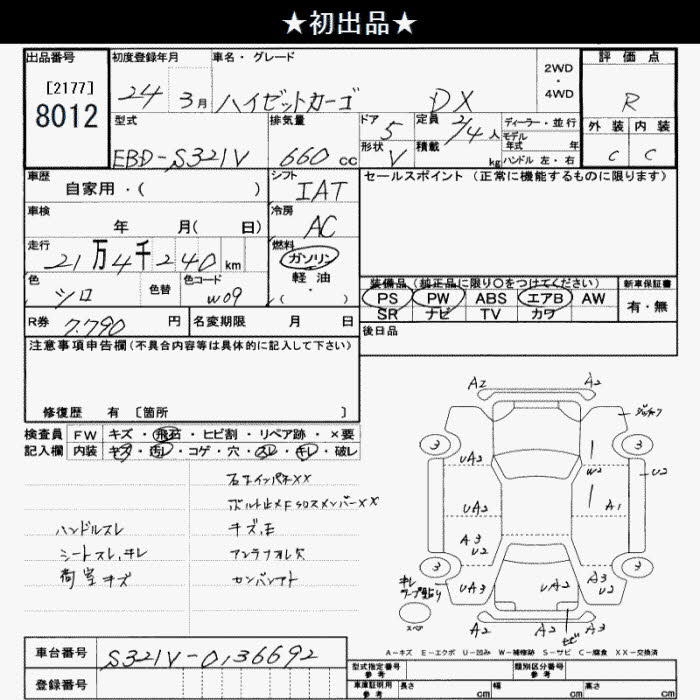 ★初出品★
出品番号
[2177]
8012
初度登録年月
24 3月
車名・グレード
ハイゼットカーゴ DX
2WD
・
4WD
評価点
R
外装 内装
C C
型式
EBD-S321V
排気量
660 cc
ドア 5
形状 V
定員 2/4 人
積載 kg
ディーラー・並行
モデル年式 年
ハンドル 左・右
車歴
自家用・( )
シフト
IAT
セールスポイント (正常に機能するものに限ります)
車検
年 月( 日)
冷房
AC
走行
21万4千240 km
燃料
ガソリン
軽油
・
( )
色
シロ
色替
色コード
W09
装備品(純正品に限り○をつけてください)
PS PW ABS エアB AW
SR ナビ TV カワ
新車保証書
有・無
R券 7.790 円
名変期限 月 日
後日品
注意事項申告欄(不具合内容等は具体的に記入して下さい)
修復歴 有 [箇所 ]
検査員 FW キズ・飛石・ヒビ割・リペア跡・×要
記入欄 内装 キズ・汚レ・コゲ・穴・スレ・キレ・破レ
右インパネXX
ボルト止メFクロスメンバーXX
ハンドルスレ キズ、E
シートスレ、キレ アンテナオレ欠
荷室キズ
A2 A2
3 3
UA2 W2 U2
UA2 A1
A3 U2
3 3
UA3 UA2 A3 U2
キレ
スペア
A2 A2
サビ
A-キズ E-エクボ U-凹み W-補修跡 S-サビ C-腐食 XX-交換済
車台番号 S321V-0136692
登録番号
型式指定番号 参考
類別区分番号 参考
車庫証明用 参考
長さ cm 幅 cm 高さ cm